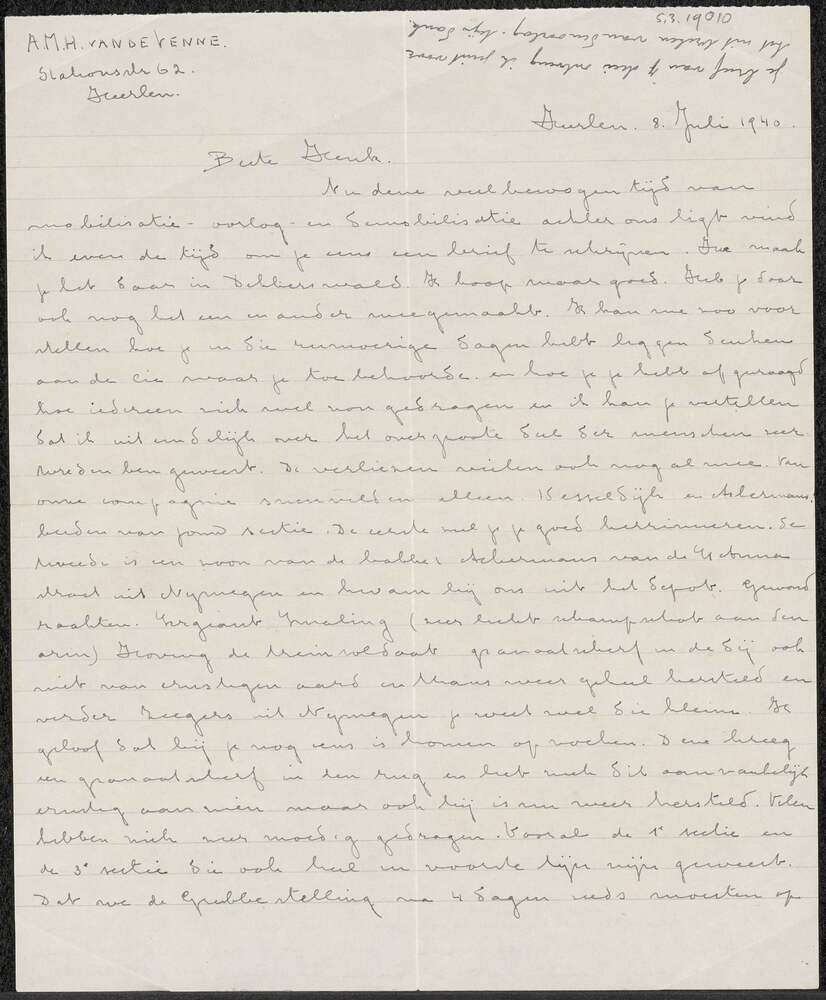 A.M.H. VAN DE VENNE.
Stationsstr 62
Heerlen.
5.3.19010
Je brief van 7 dezer ontving ik juist voor
het uitbreken van den oorlog. Mijn dank.
Heerlen. 8. Juli 1940.
Beste Henk.
Nu deze veelbewogen tijd van
mobilisatie - oorlog - en demobilisatie achter ons ligt vind
ik even de tijd om je eens een brief te schrijven. Hoe maak
je het daar in Dekkerswald. Ik hoop maar goed. Heb je daar
ook nog het een en ander meegemaakt. Ik kan me zoo voor
stellen hoe je in die rumoerige dagen hebt liggen denken
aan de cie waar je toe behoorde. en hoe je je hebt afgevraagd
hoe iedereen zich wel zou gedragen en ik kan je vertellen
dat ik uiteindelijk over het overgroote deel der menschen zeer
tevreden ben geweest. De verliezen vielen ook nog al mee. Van
onze compagnie sneuvelden alleen. Kesseldijk en Ackermans.
beiden van jouw sectie. De eerste zul je je goed herinneren. De
tweede is een zoon van de bakker Ackermans van de St Anna
straat uit Nijmegen en kwam bij ons uit het depot. Gewond
raakten. Sergeant Smaling (zeer licht schampschot aan den
arm) Hoving de treinsoldaat granaatscherf in de dij ook
niet van ernstigen aard en thans weer geheel hersteld en
verder Zeegers uit Nijmegen je weet wel die kleine. Ik
geloof dat hij je nog eens is komen opzoeken. Deze kreeg
een granaatscherf in den rug en liet zich dit aanvankelijk
ernstig aanzien maar ook hij is nu weer hersteld. Velen
hebben zich zeer moedig gedragen. Vooral de 1e sectie en
de 3e sectie die ook heel in voorste lijn zijn geweest.
Dat we de Grebbestelling na 4 dagen reeds moesten op